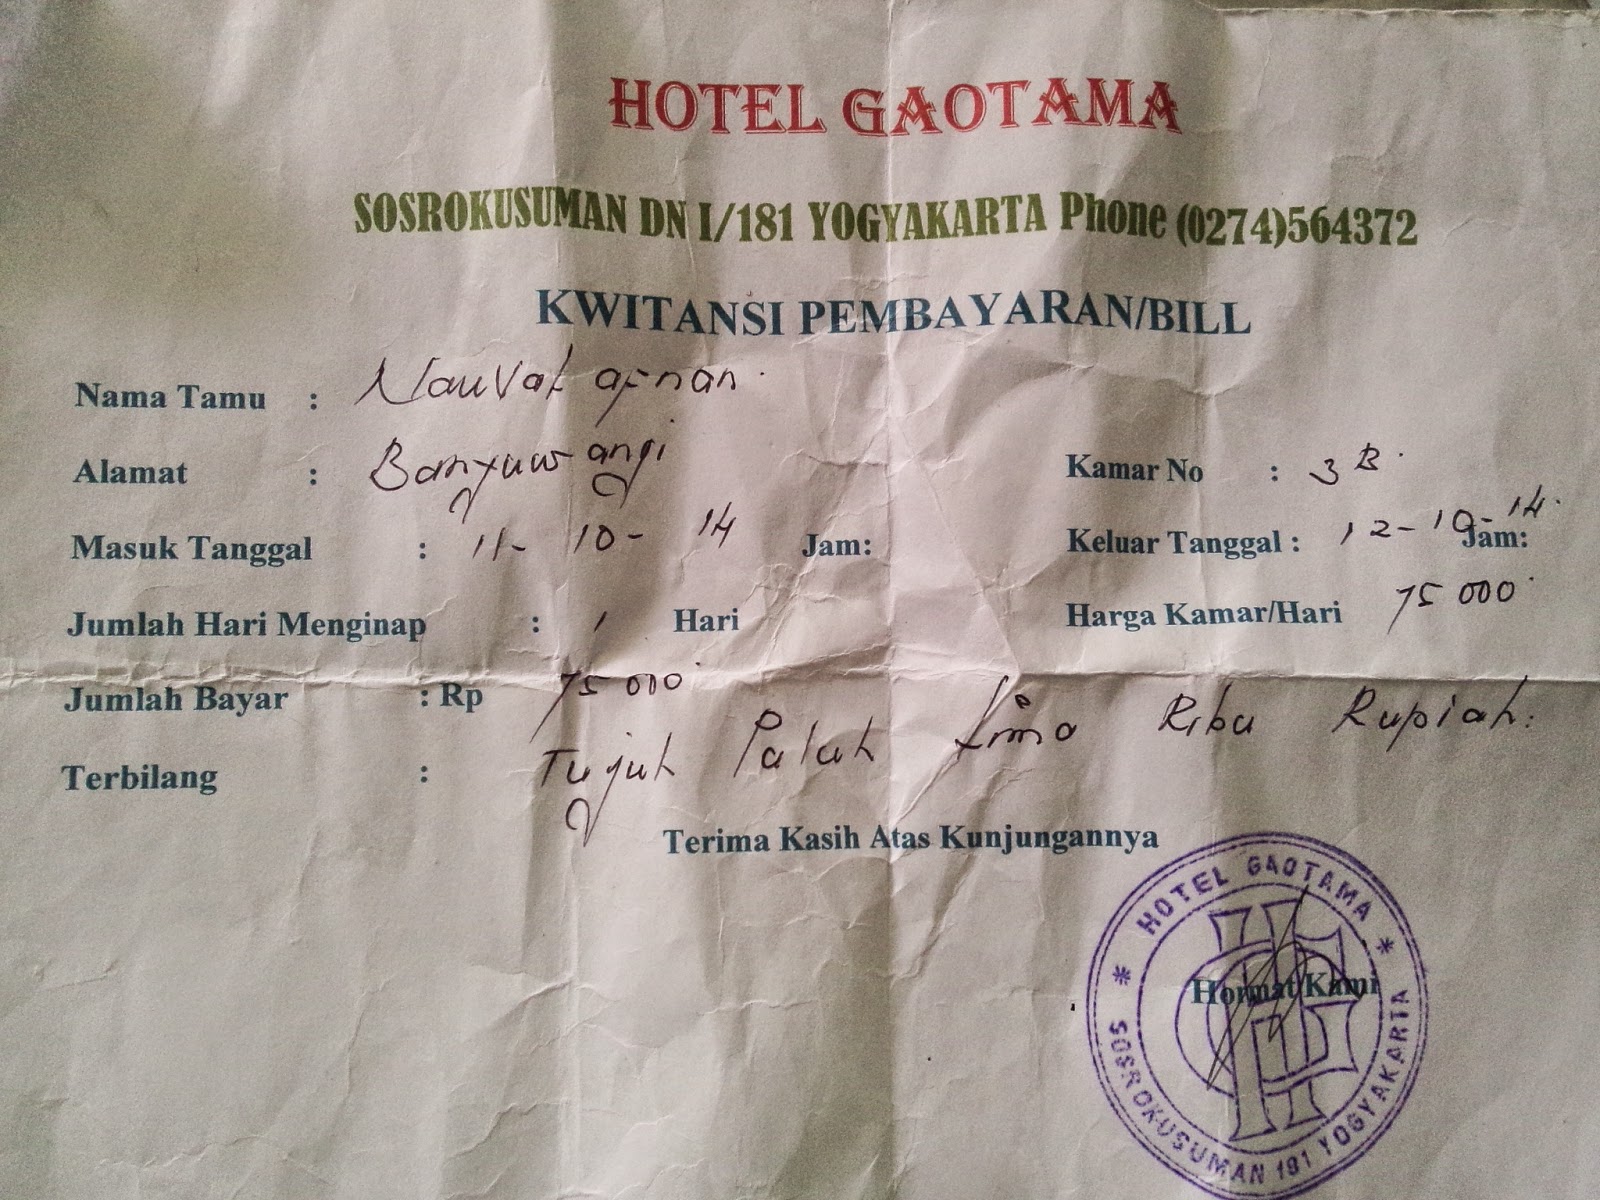 HOTEL GAOTAMA
SOSROKUSUMAN DN I/181 YOGYAKARTA Phone (0274)564372
KWITANSI PEMBAYARAN/BILL
Nama Tamu : Nauval afnan
Alamat : Banyuwangi Kamar No : 3 B
Masuk Tanggal : 11- 10- 14 Jam: Keluar Tanggal : 12-10-14 Jam:
Jumlah Hari Menginap : 1 Hari Harga Kamar/Hari 75 000
Jumlah Bayar : Rp 75 000
Terbilang : Tujuh Puluh Lima Ribu Rupiah
Terima Kasih Atas Kunjungannya
Hormat Kami
* HOTEL GAOTAMA *
SOSROKUSUMAN 181 YOGYAKARTA